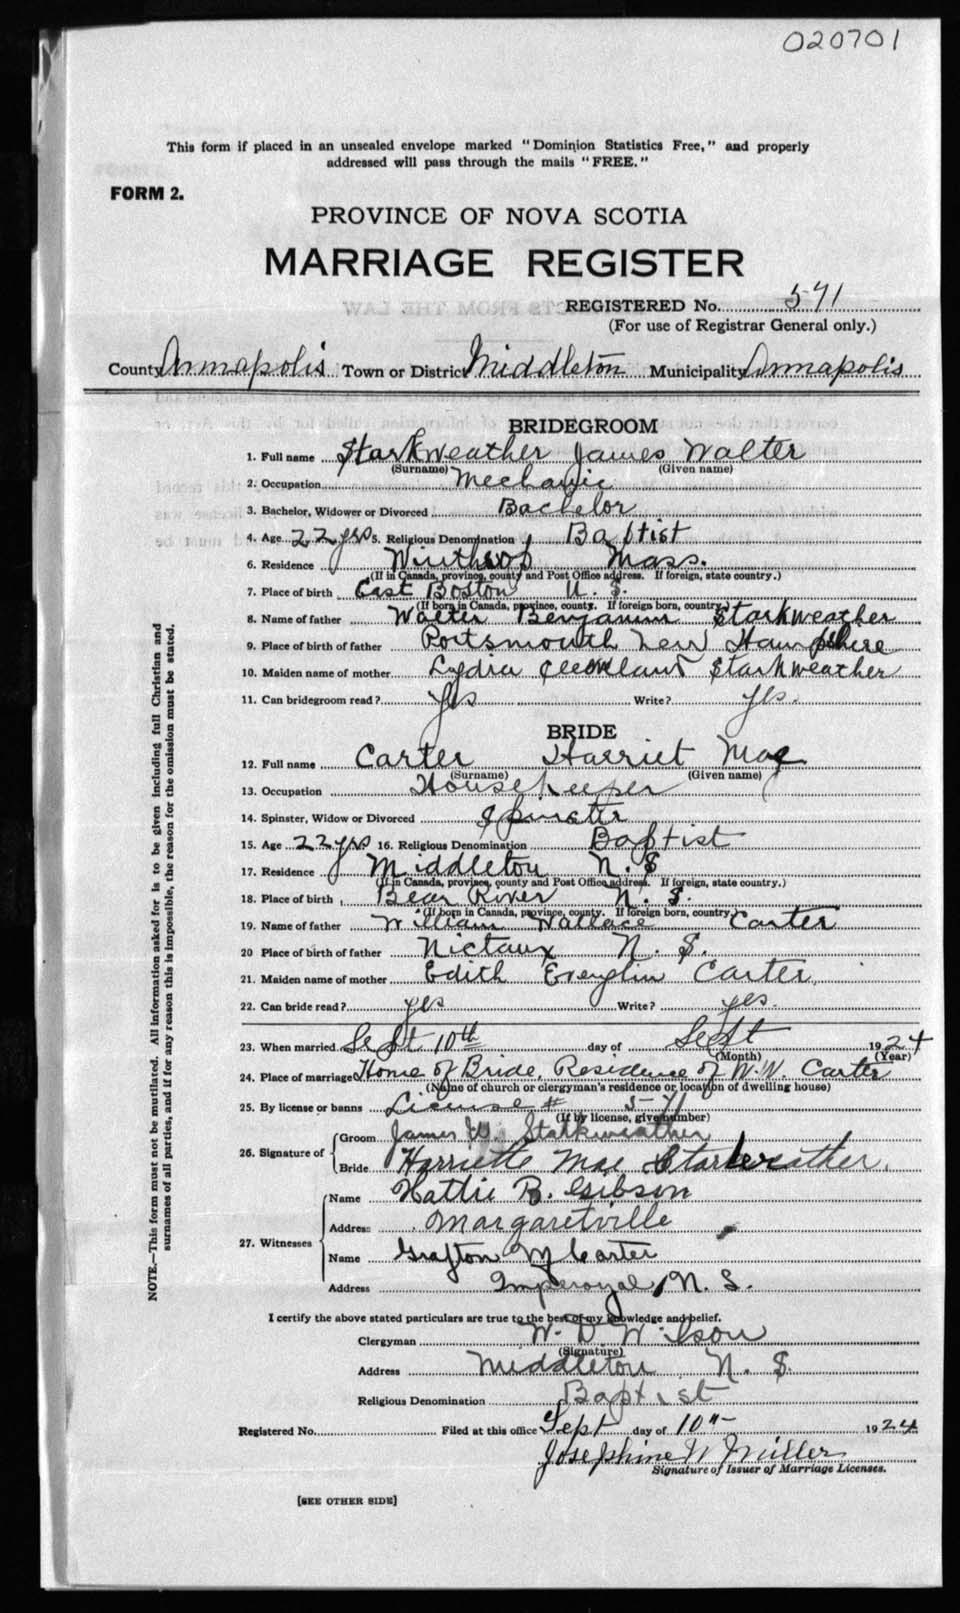 020701
This form if placed in an unsealed envelope marked "Dominion Statistics Free," and properly
addressed will pass through the mails "FREE."
FORM 2.
PROVINCE OF NOVA SCOTIA
MARRIAGE REGISTER
REGISTERED No. 571
(For use of Registrar General only.)
County Annapolis Town or District Middleton Municipality Annapolis
BRIDEGROOM
1. Full name Starkweather James Walter
(Surname) (Given name)
2. Occupation Mechanic
3. Bachelor, Widower or Divorced Bachelor
4. Age 22 yrs 5. Religious Denomination Baptist
6. Residence Winthrop Mass.
(If in Canada, province, county and Post Office address. If foreign, state country.)
7. Place of birth East Boston N. S.
(If born in Canada, province, county. If foreign born, country.)
8. Name of father Walter Benjamin Starkweather
9. Place of birth of father Portsmouth New Hampshire
10. Maiden name of mother Lydia Starkweather
11. Can bridegroom read? Yes Write? yes.
BRIDE
12. Full name Carter Harriet Mae
(Surname) (Given name)
13. Occupation Housekeeper
14. Spinster, Widow or Divorced Spinster
15. Age 22 yrs 16. Religious Denomination Baptist
17. Residence Middleton N. S
(If in Canada, province, county and Post Office address. If foreign, state country.)
18. Place of birth Bear River N. S.
(If born in Canada, province, county. If foreign born, country.)
19. Name of father William Wallace Carter
20 Place of birth of father Nictaux N. S.
21. Maiden name of mother Edith Evenglin Carter
22. Can bride read? yes Write? yes.
23. When married Sept 10th day of Sept 1924
(Month) (Year)
24. Place of marriage Home of Bride, Residence of W. W. Carter
(Name of church or clergyman's residence or location of dwelling house)
25. By license or banns License # 571
(If by license, give number)
26. Signature of
Groom James W. Starkweather
Bride Harriette Mae Starkweather.
27. Witnesses
Name Hattie B. Gibson
Address Margaretville
Name Grafton M Carter
Address Imperoyal, N. S.
I certify the above stated particulars are true to the best of my knowledge and belief.
Clergyman W. D Wilson
(Signature)
Address Middleton N. S.
Religious Denomination Baptist
Registered No. Filed at this office Sept day of 10th 1924
Josephine W Miller
Signature of Issuer of Marriage Licenses.
[SEE OTHER SIDE]
NOTE.—This form must not be mutilated. All information asked for is to be given including full Christian and
surnames of all parties, and if for any reason this is impossible, the reason for the omission must be stated.